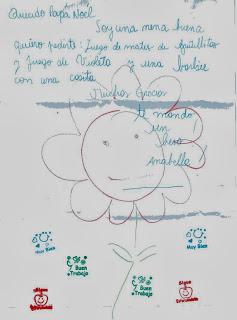 Querido Papá Noel
Soy una nena buena
quiero pedirte: Juego de mates de
y Juego de Violeta y una barbie
con una casita
Muchas Gracias
te mando
un
beso
Anabella
Muy Bien
Sigue
Y Buen
Trabajo
Y Buen
Trabajo
Muy Bien
Sigue